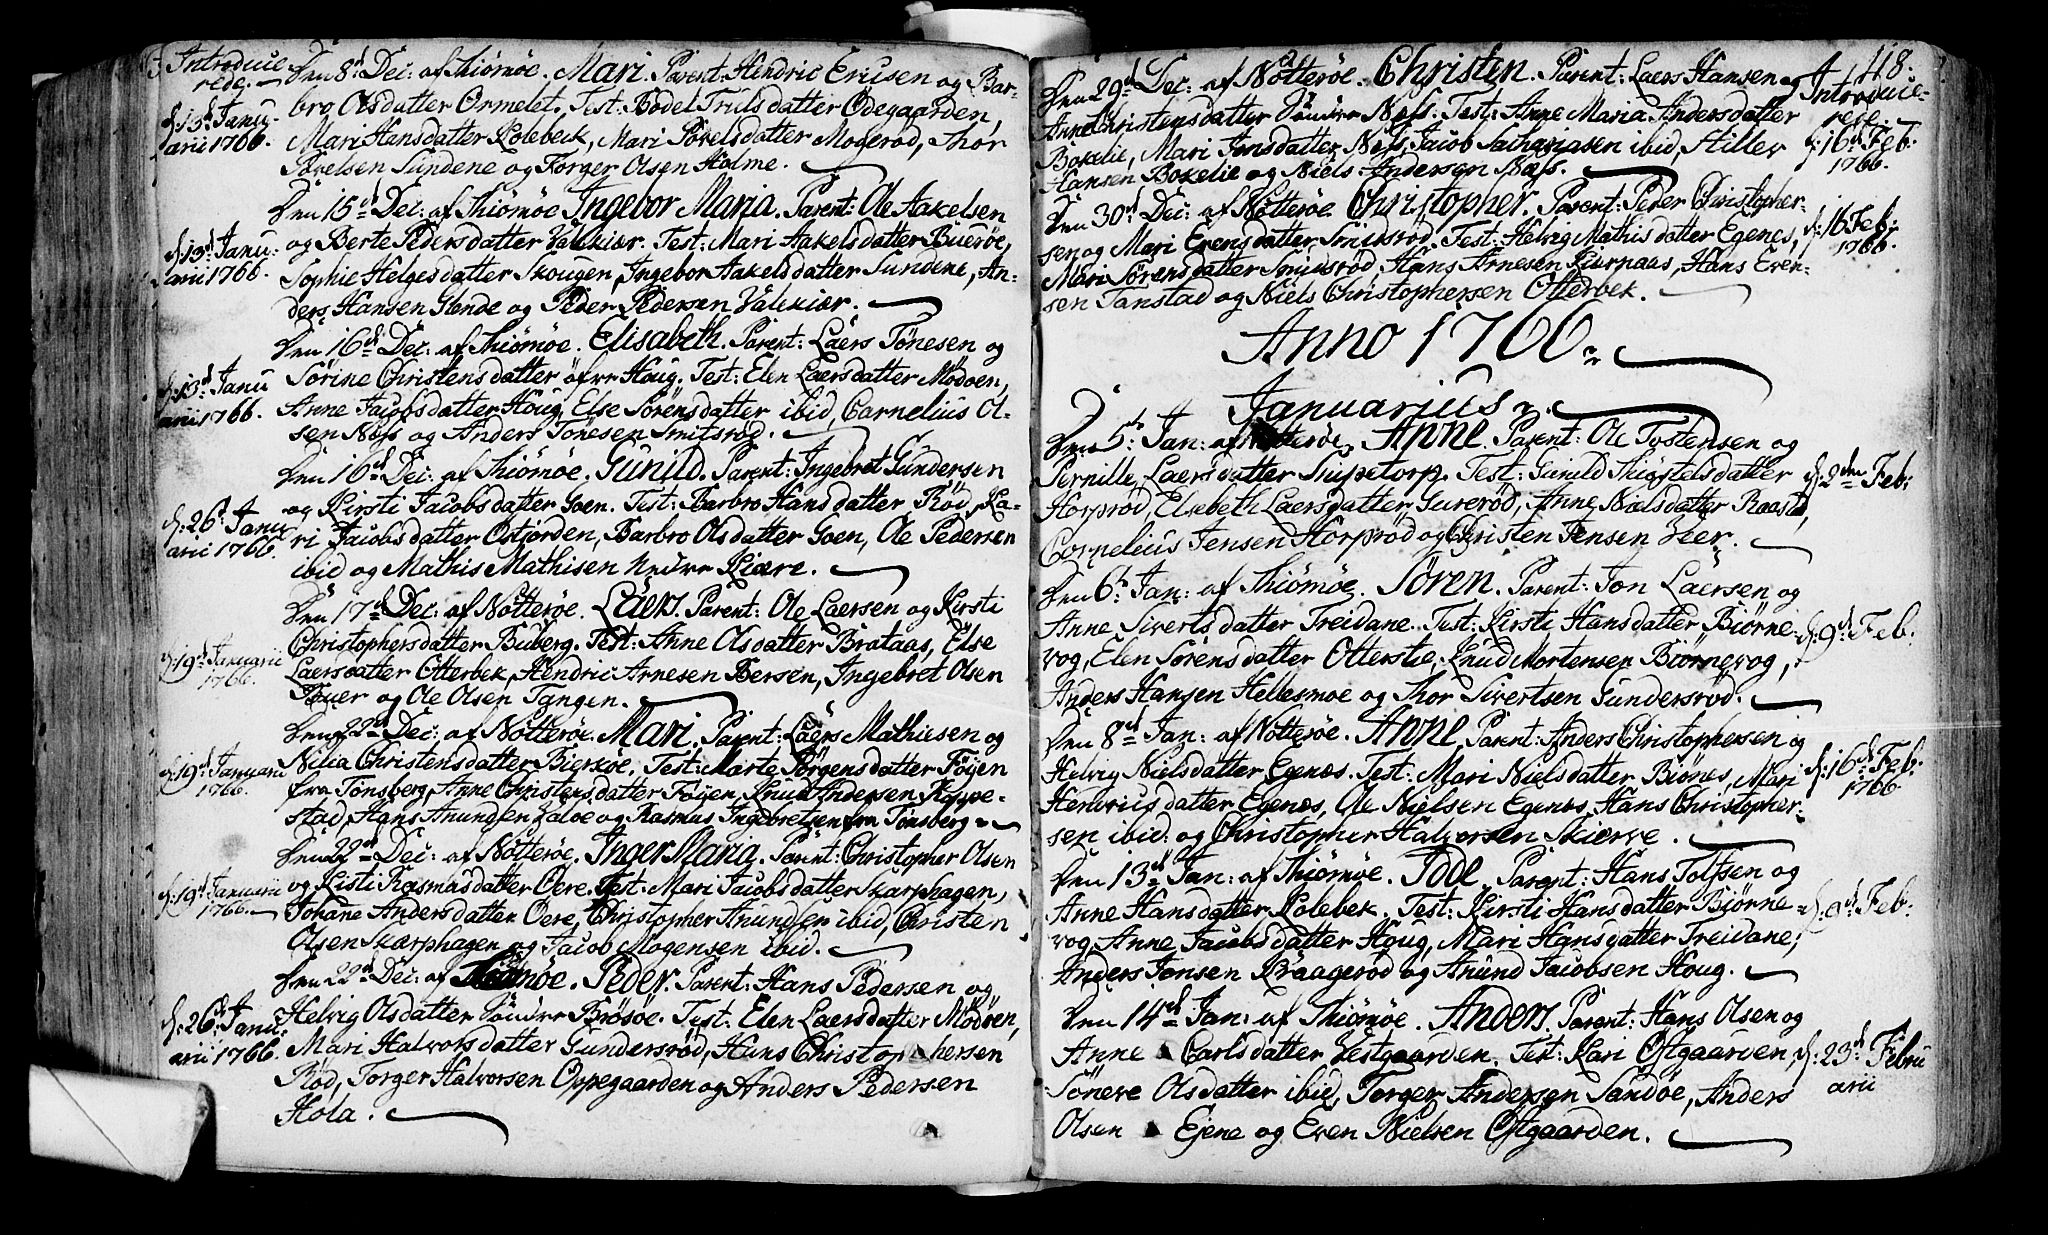 Introduce-
rede.
Den 8d Dec: af Thiömöe. Mari. Parent: Hendric Ericsen og Bar-
bro Olsdatter Ormelet. Test: Bodel Trulsdatter Ödegaarden,
d: 13d Janu-
arii 1766.
Mari Hansdatter Kolebeck, Mari Povelsdatter Mogeröd, Thor
Povelsen Sundene og Torger Olsen Holme.
Den 15d Dec: af Thiömöe Ingebor Maria. Parent: Ole Aakelsen
d: 13d Janu-
arii 1766.
og Berte Pedersdatter Valekiær. Test: Mari Aakelsdatter Bueröe,
Sophie Helgesdatter Skougen, Ingebor Aakelsdatter Sundene, An-
ders Hansen Glende og Peder Pedersen Valekiær.
Den 16d Dec: af Thiömöe. Elisabeth. Parent: Laers Tönesen og
d: 13d Janu
arii 1766.
Sörine Christensdatter öfvre Houg. Test: Elen Laersdatter Mödöen,
Anne Jacobsdatter Houg, Else Sörensdatter ibid, Carnelius Ol-
sen Næss og Anders Tönesen Smitsröd.
Den 16d Dec: af Thiömöe. Gunild. Parent: Ingebret Gundersen
d: 26d Janu
arii 1766.
og Kirsti Jacobsdatter Goen. Test: Barbro Hansdatter Röd, Ka-
ri Jacobsdatter Östjorden, Barbro Olsdatter Goen, Ole Pedersen
ibid og Mathis Mathisen Nedre Kiære.
Den 17d Dec: af Nötteröe. Laers. Parent: Ole Laersen og Kirsti
d: 19d Januarii
1766.
Christophersdatter Buberg. Test: Anne Olsdatter Brataas, Else
Laersdatter Otterbek, Hendric Arnesen Bersen, Ingebret Olsen
Buer og Ole Olsen Tangen.
Den 22d Dec: af Nötteröe. Mari. Parent: Laers Mathiesen og
d: 19d Januarii
1766.
Nilia Christensdatter Bierköe. Test: Marte Jörgensdatter Föyen
fra Tönsberg, Anne Christensdatter Föyen, Knud Andersen Koppe-
stad, Hans Anundsen Valöe og Rasmus Ingebretsen fra Tönsberg
Den 22d Dec: af Nötteröe. Inger Maria. Parent: Christopher Olsen
d: 19d Januarii
1766.
og Kisti Rasmusdatter Oere. Test: Mari Jacobsdatter Skarphagen,
Johane Andersdatter Oere, Christopher Anundsen ibid, Christen
Olsen Skarphagen og Jacob Mogensen ibid.
Den 22d Dec: af Thiömöe. Peder. Parent: Hans Pedersen og
d: 26d Janu-
arii 1766.
Helvig Olsdatter Söndre Brösöe. Test: Elen Laersdatter Mödöen,
Mari Halvorsdatter Gundersröd, Hans Christophersen
Röd, Torger Halvorsen Oppegaarden og Anders Pedersen
Hola.
118.
Introduce-
rede.
Den 29d Dec: af Nötteröe. Christen. Parent: Laers Hansen og
Anne Christensdatter Söndre Næss. Test: Anne Maria Andersdatter
d: 16d Feb:
1766.
Bokelie, Mari Jensdatter Næss, Jacob Sachariasen ibid, Hiller
Hansen Bokelie og Niels Andersen Næss.
Den 30d Dec: af Nötteröe Christopher. Parent: Peder Christopher-
d: 16 Feb:
1766.
sen og Mari Evensdatter Smidsröd. Test: Helvig Mathisdatter Egenes,
Mari Sörensdatter Smidsröd, Hans Arnesen Kurpaas, Hans Even-
sen Tanstad og Niels Christophersen Otterbek.
Anno 1766.
Januarius.
Den 5t Jan: af Nötteröe. Anne. Parent: Ole Tostensen og
d: 2den Feb:
Pernille Laersdatter Snipetorp. Test: Gunild Thiostelsdatter
Horpröd, Elsebeth Laersdatter Gureröd, Anne Nielsdatter Raastad,
Cornelius Jensen Horpröd og Christen Jensen Veer.
Den 6t Jan: af Thiömöe. Sören. Parent: Jon Laersen og
d: 9d Feb.
Anne Sivertsdatter Treidane. Test: Kirsti Hansdatter Biörne-
vog, Elen Sörensdatter Otterstie, Knud Mortensen Biörnevog,
Anders Hansen Hellesmoe og Thor Sivertsen Gundersröd.
Den 8d Jan: af Nötteröe. Anne. Parent: Anders Christophersen og
d: 16d Feb:
1766
Helvig Nielsdatter Egenæs. Test: Mari Nielsdatter Biönes, Mari
Hendricsdatter Egenæs, Ole Nielsen Egenæs, Hans Christopher-
sen ibid: og Christopher Halvorsen Skierve.
Den 13d Jan: af Thiömöe. Tode. Parent: Hans Tolfsen og
d: 9d Feb:
Anne Hansdatter Kolebek. Test: Kirsti Hansdatter Biörne-
vog, Anne Jacobsdatter Houg, Mari Hansdatter Treidane,
Anders Jonsen Kraageröd og Anund Jacobsen Houg.
Den 14d Jan: af Thiömöe. Anders. Parent: Hans Olsen og
d: 23d Febru
arii
Anne Carlsdatter Vestgaarden. Test: Kari Östgaarden,
Tönere Olsdatter ibid, Torger Andersen Sandöe, Anders
Olsen Ejene og Even Nielsen Östgaarden.